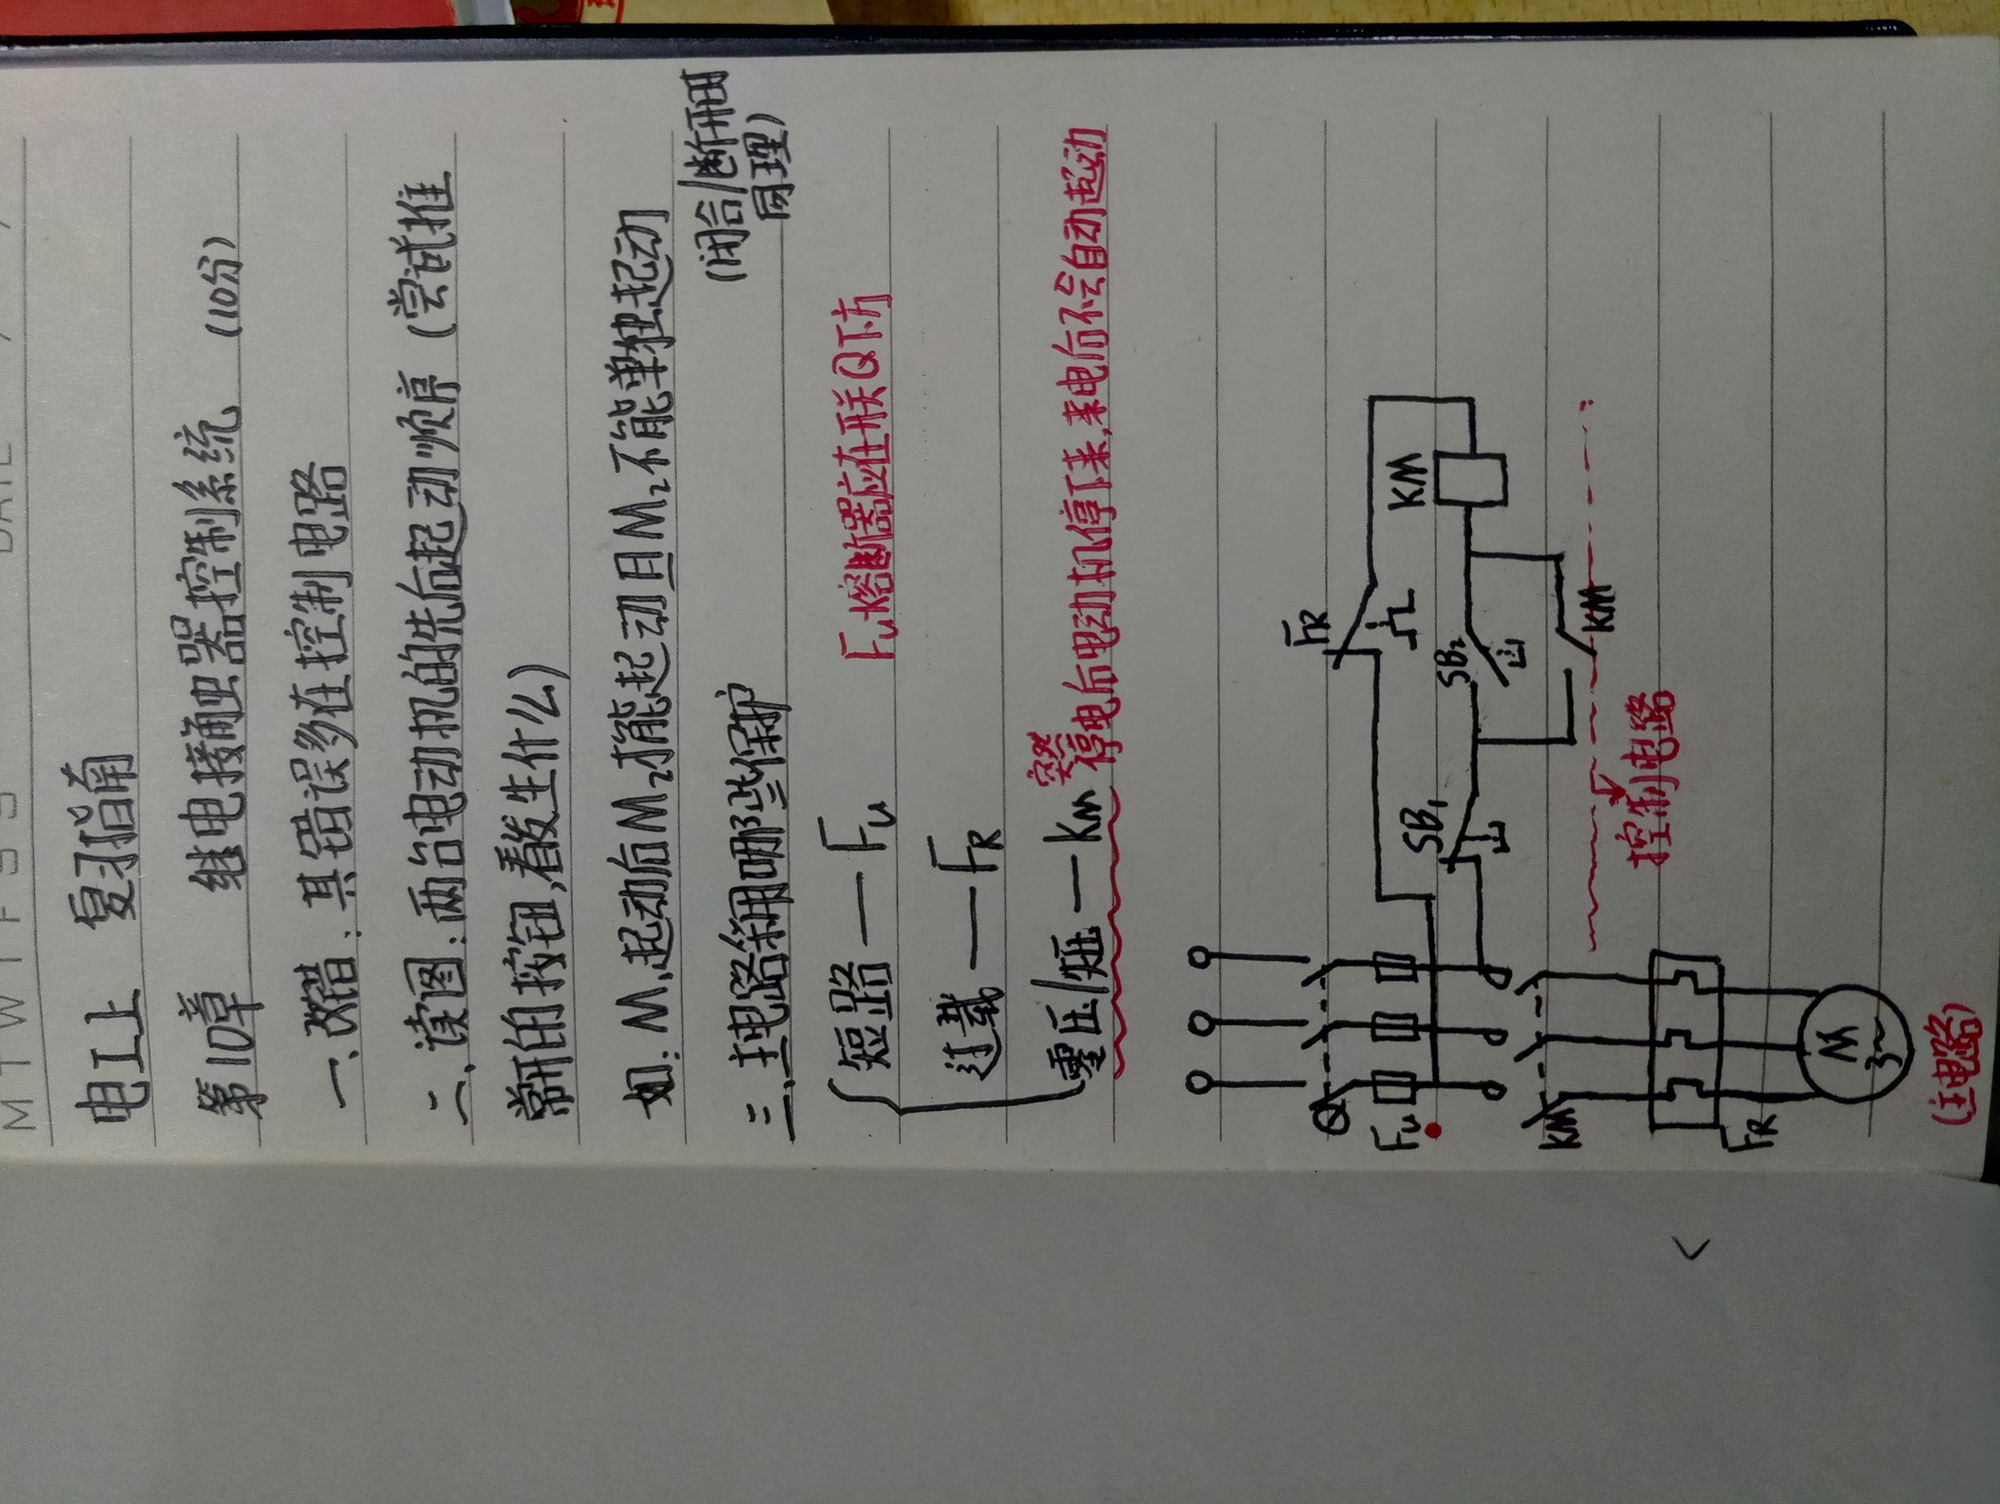 M T W T F S S DATE / /
电工上 复习指南
第10章 继电接触器控制系统 (10分)
一、改错:其错误多在控制电路
二、读图:两台电动机的先后起动顺序(尝试推
常开的按钮,看发生什么)
如:M₁起动后M₂才能起动且M₂不能单独起动
(闭合/断开时
同理)
三、主电路采用哪些保护
短路 — Fu Fu熔断器应在开关Q下方
过载 — FR
零压/失压 — KM 突然
停电后电动机停下来,来电后不会自动起动
FR
Q
Fu
SB₁
SB₂
KM
KM
KM
控制电路
FR
M
3~
(主电路)